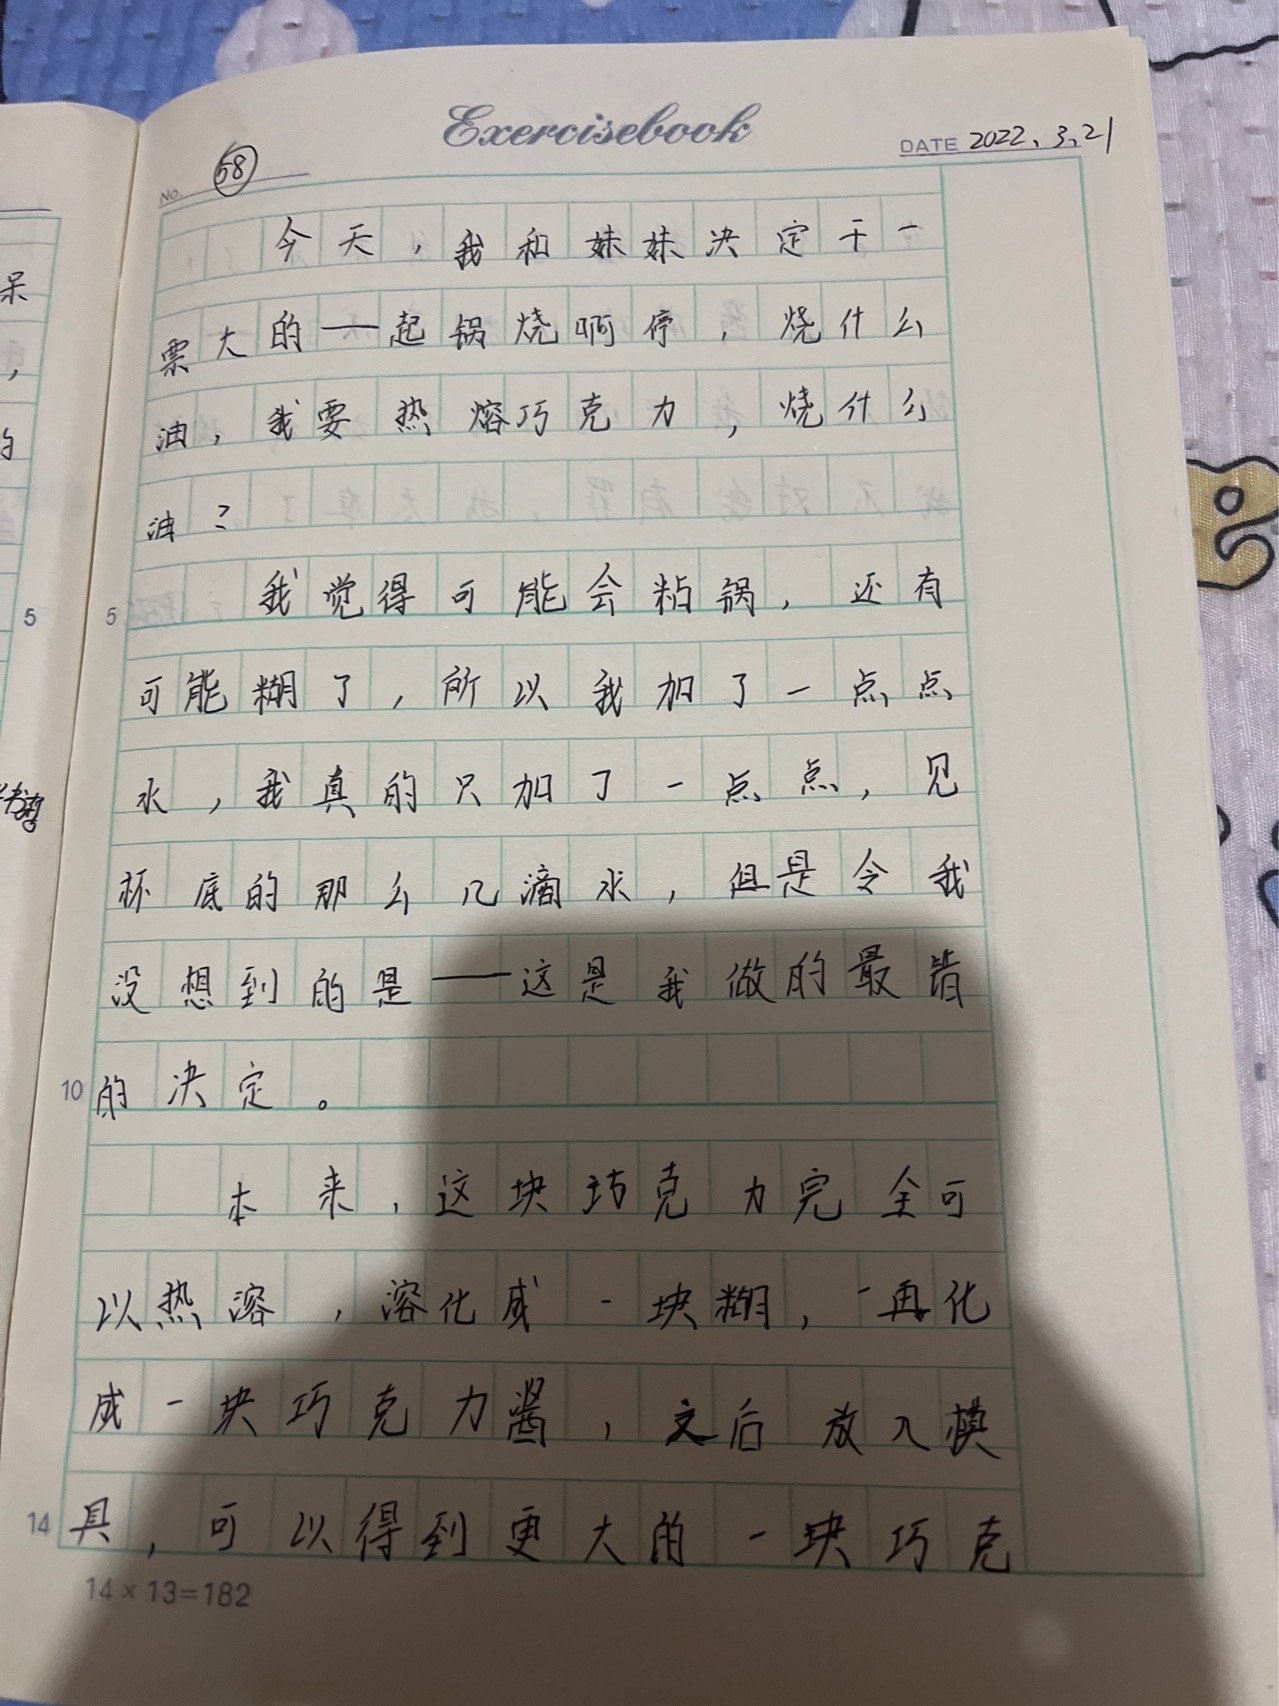 Exercisebook
No. 68
DATE 2022、3、21
今天，我和妹妹决定干一
票大的——起锅烧啊停，烧什么
油，我要热熔巧克力，烧什么
油？
5 我觉得可能会粘锅，还有
可能糊了，所以我加了一点点
水，我真的只加了一点点，见
杯底的那么几滴水，但是令我
没想到的是——这是我做的最
10 的决定。
本来，这块巧克力完全可
以热溶，溶化成一块糊，再化
成一块巧克力酱，之后放入模
14 具，可以得到更大的一块巧克
14×13=182
呆
，
的
5